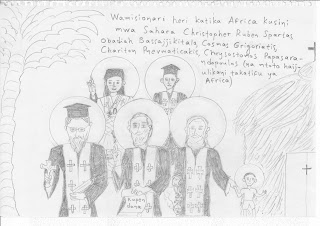 Wamisionari heri katika Africa Kusini
mwa Sahara Christopher Ruben Spartas
Obadiah Bassajjikitalo Cosmas Grigoriatis,
Chariton Pneumatikakis Chrysostomos Papasara-
ndopoulos (na mtoto haij-
ulikani takatifu ya
Africa)